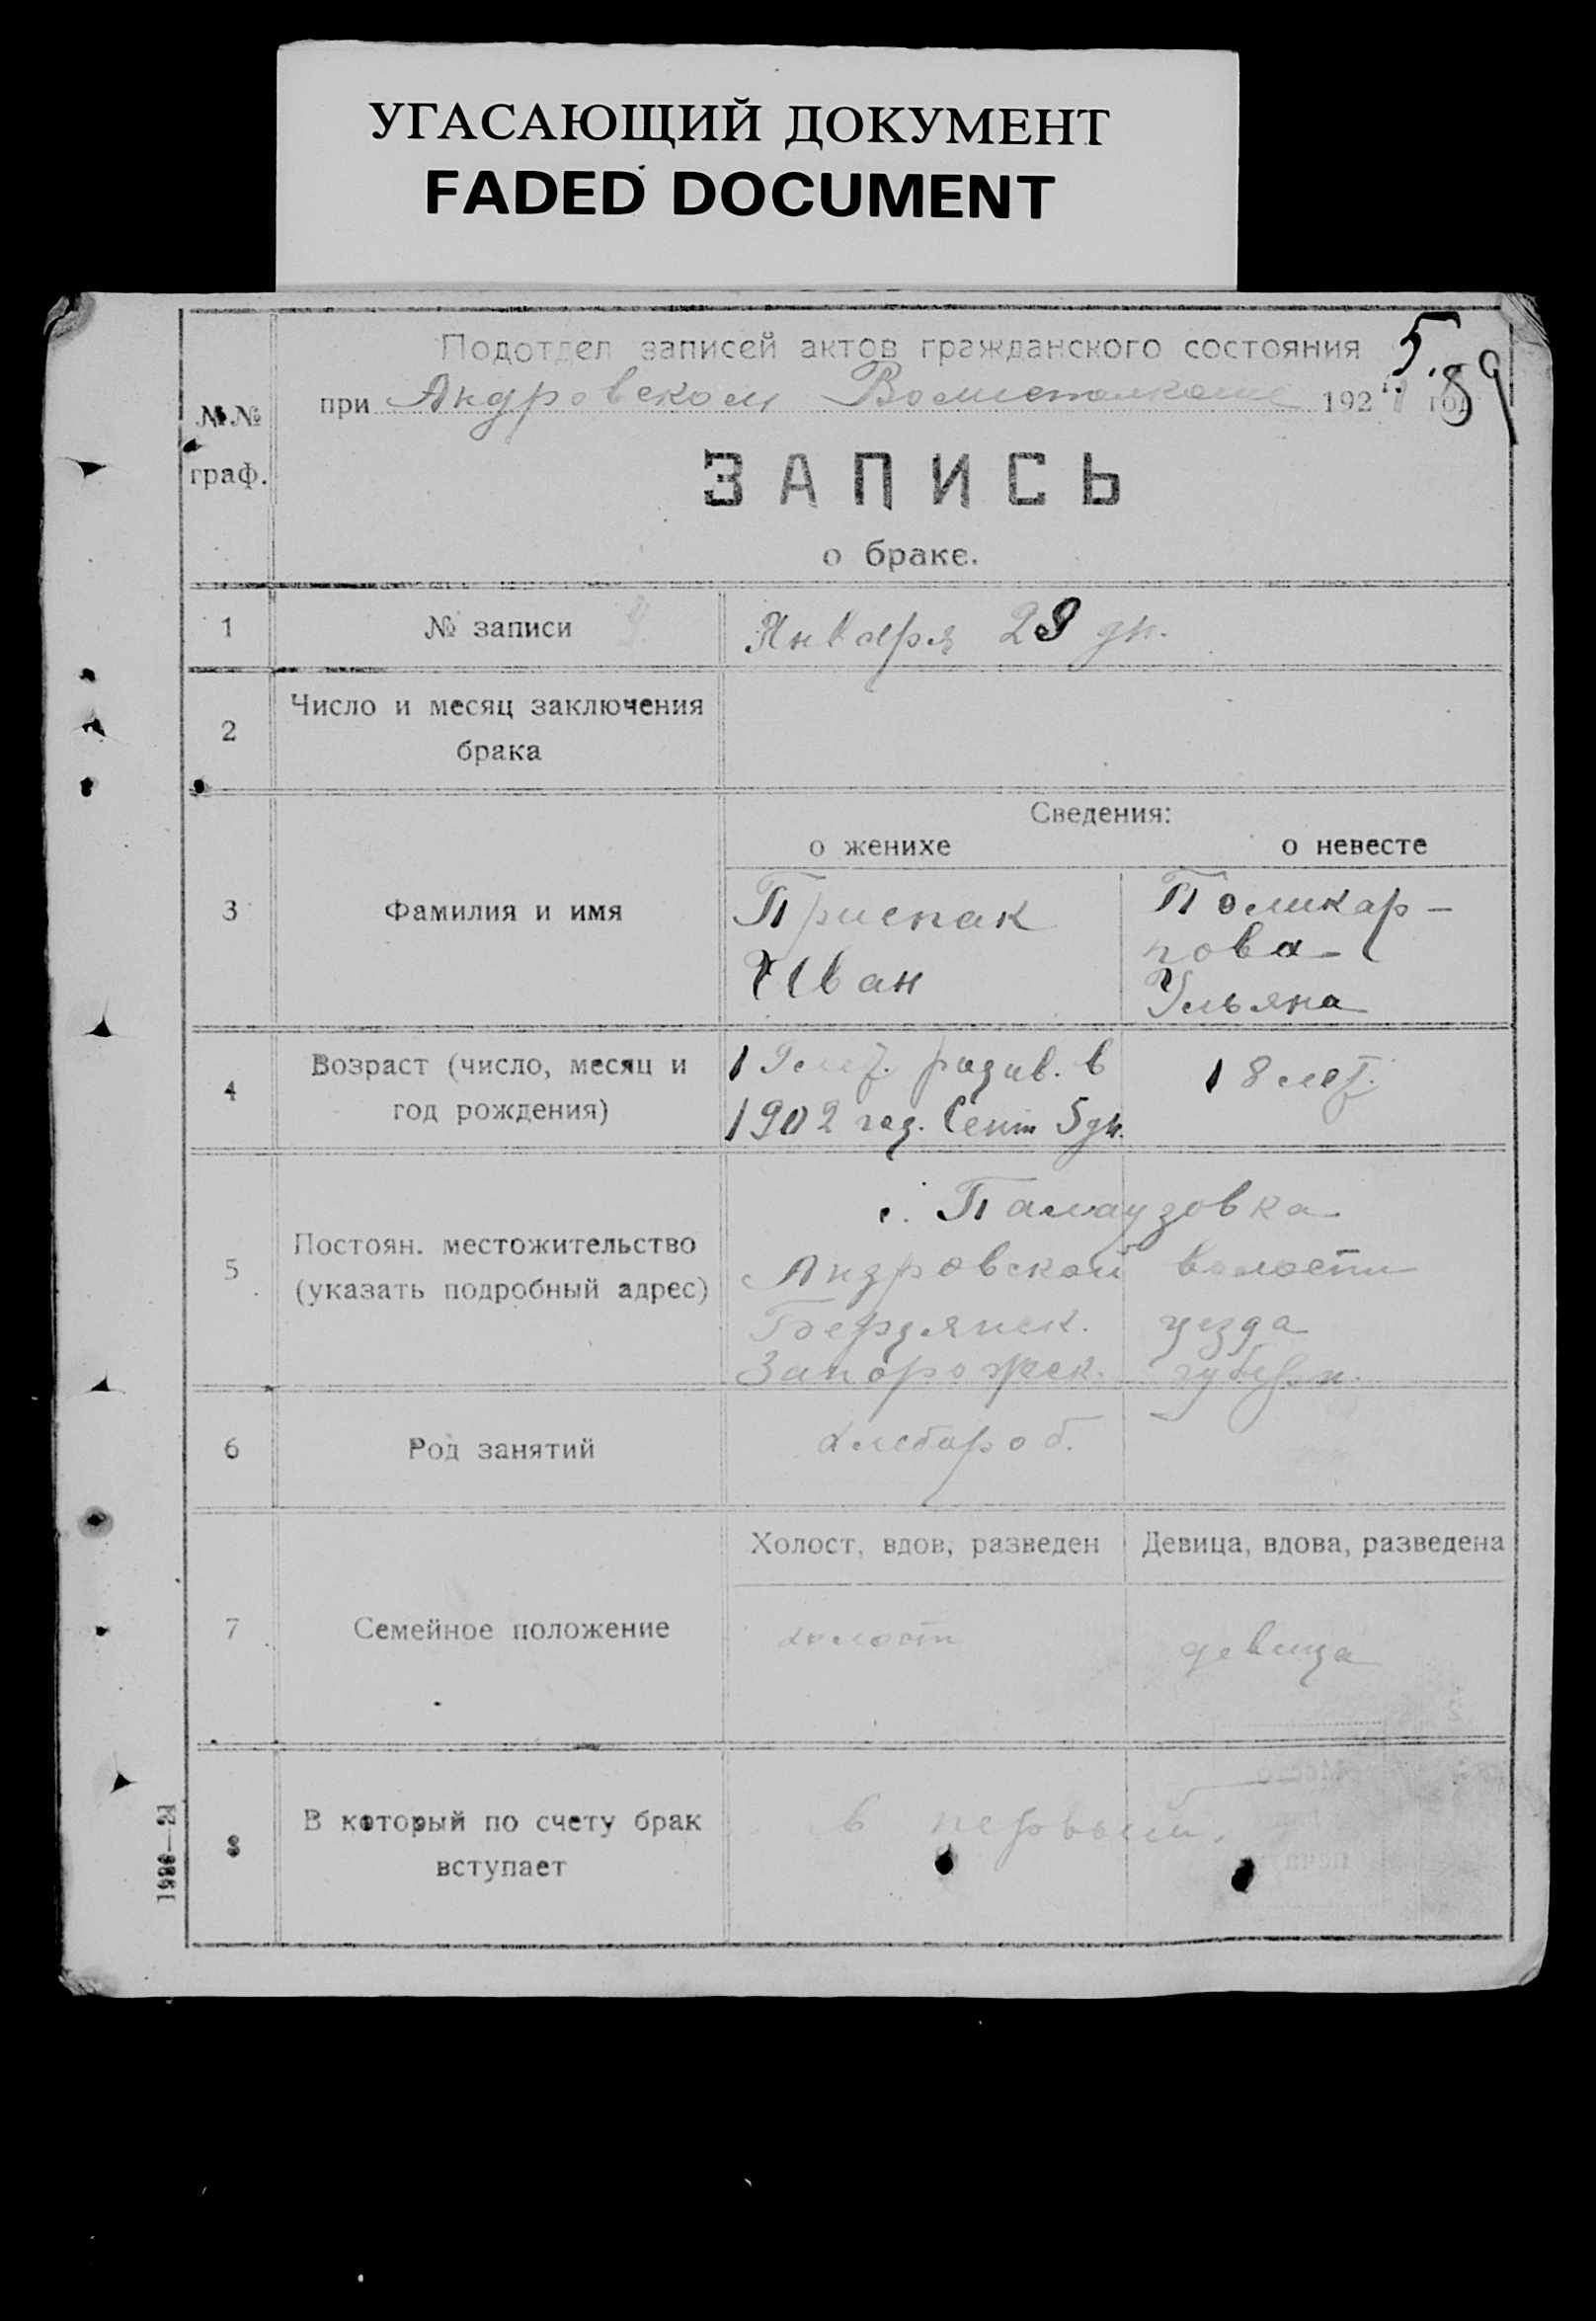 УГАСАЮЩИЙ ДОКУМЕНТ
FADED DOCUMENT
Подотдел записей актов гражданского состояния
5.
при Андровском 192 год
89
№№
граф.
ЗАПИСЬ
о браке.
1 № записи Января 29 дн.
2 Число и месяц заключения
брака
Сведения:
о женихе о невесте
3 Фамилия и имя
Приспак Поликар-
Иван пова
Ульяна
4 Возраст (число, месяц и
год рождения)
19 лет. родив. в 18 лет.
1902 год. Сент 5 дн.
5 Постоян. местожительство
(указать подробный адрес)
с. Палаузовка
Андровской волости
Бердянск. уезда
Запорожск. губерн.
6 Род занятий хлебороб.
Холост, вдов, разведен Девица, вдова, разведена
7 Семейное положение холост девица
8 В который по счету брак
вступает
в первый.